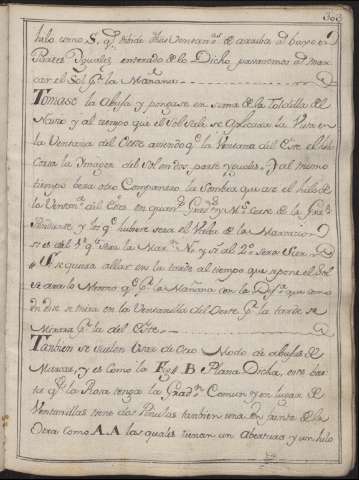 hilo como S, q.e dibide dhas Ventan.as de arriba a baxo en
Partes Yguales, enterado de lo Dicho, pasaremos a mar
car el Sol p.r la Mañana
Tomase la Abuja y pongase en sima de la Toldilla del
Navio y al tiempo que el Sol sale se aplicará la Vista en
la Ventana del Oeste asiendo q.e la Ventana del Este el hilo
Corta la Ymagen del Sol en dos partes yguales, y al mismo
tiempo bera otro Compañero la Sombra que are el hilo de
la Ventan.a del Oeste en quan.s Grad.s y M.s corte de la Grad.n
Pendiente y los q.e hubiere sera el Yerro de la Marcacion
si es del 1.o q.e sera la Mar.n N. y si al 2.o sera Sur
Si se quiere allar en la tarde al tiempo que se pone el Sol
se ara lo Mismo q.e p.r la Mañana con la Dif.a que como
en ese se mira en la Ventanilla del Oeste p.r la tarde se
Mirara p.r la del Este
Tambien se suelen Usar de Otro Modo de abujas de
Marcar, y es Como la Fig.a B Plana Dicha, este bas
ta q.e la Rosa tenga la Grad.n Comun y en lugar de
Ventanillas tiene dos Pinulas tambien una en frente de la
Otra como A.A las quales tienen un Abertura y un hilo